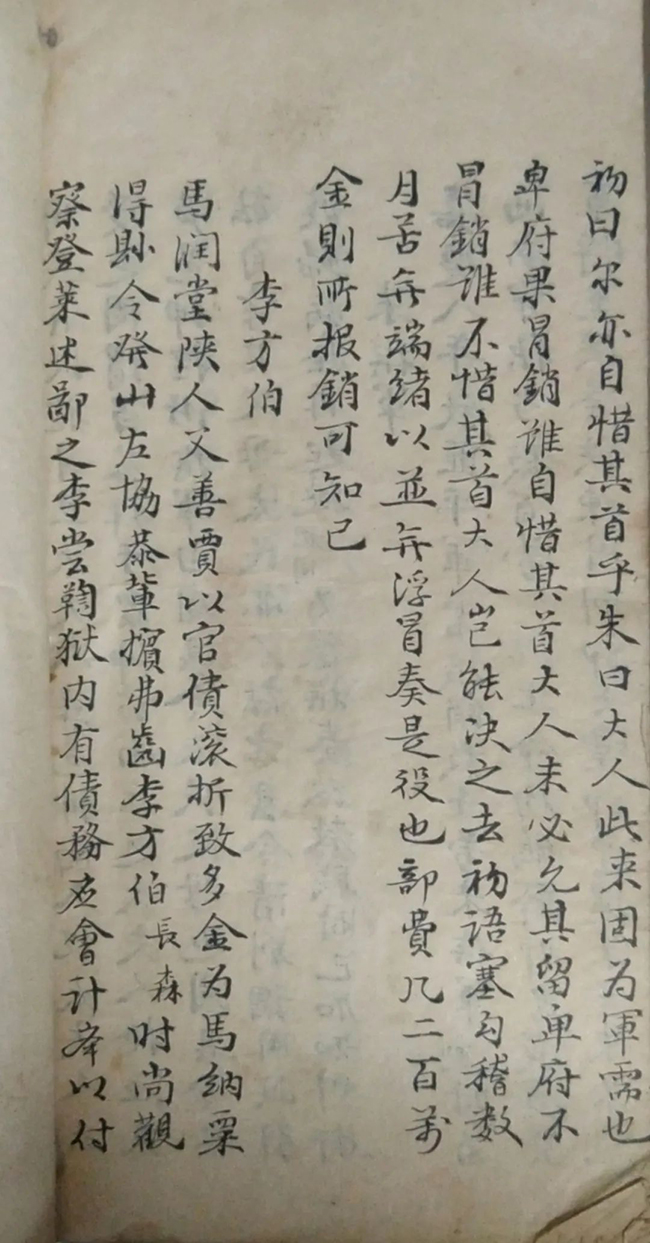 初曰尔亦自惜其首乎朱曰大人此来固为軍需也
卑府果冒銷誰自惜其首大人未必允其留卑府不
冒銷誰不惜其首大人岂能决之去初語塞勾稽数
月苦無端绪以並無浮冒奏是役也部費凡二百萬
金則所报銷可知已
李方伯
馬润堂陝人父善賈以官債滚折致多金为馬纳粟
得縣令發山左協恭輩擯弗齒李方伯長森时尚觀
察登萊迷鄙之李尝鞫狱内有債務应會计牽以付